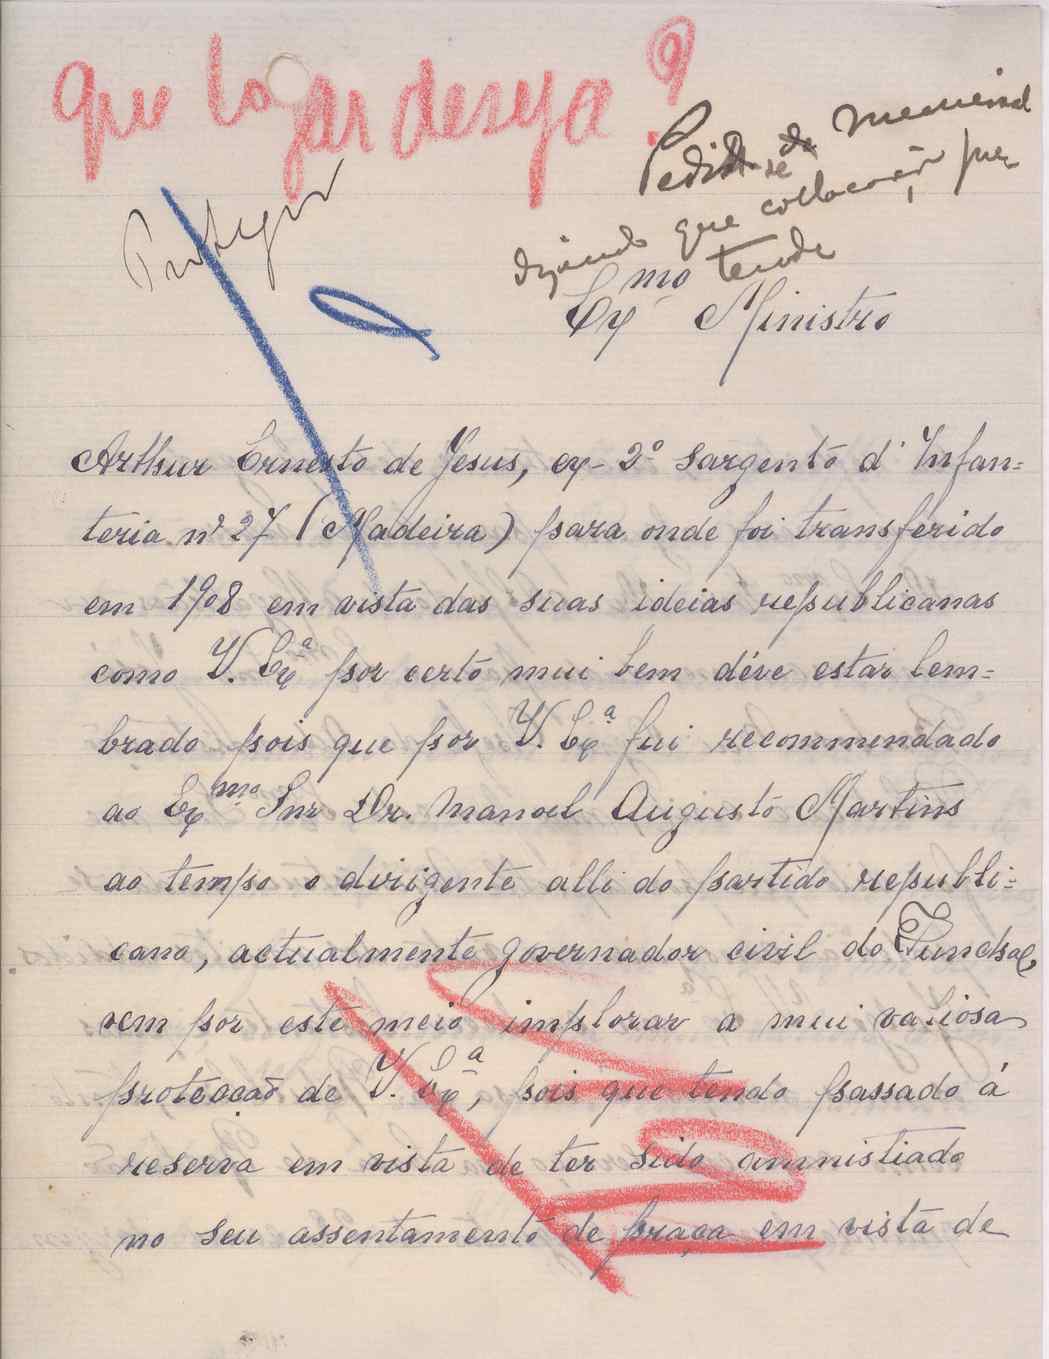 que logar deseja?
Pedir-se da memorial
dizendo que collocação pre
tende
Proteger
Exmo Ministro
Arthur Ernesto de Jesus, ex-2º Sargento d'Infan=
teria nº 27 (Madeira) para onde foi transferido
em 1908 em vista das suas ideias republicanas
como V. Exª por certo mui bem déve estar lem=
brado pois que por V. Exª fui recommendado
ao Exmo Snr Dr. Manoel Augusto Martins
ao tempo o dirigente alli do partido republi=
cano, actualmente governador civil do Funchal,
vem por este meio implorar a mui valiosa
protecção de V. Exª, pois que tendo passado á
reserva em vista de ter sido amnistiado
no seu assentamento de praça em vista de